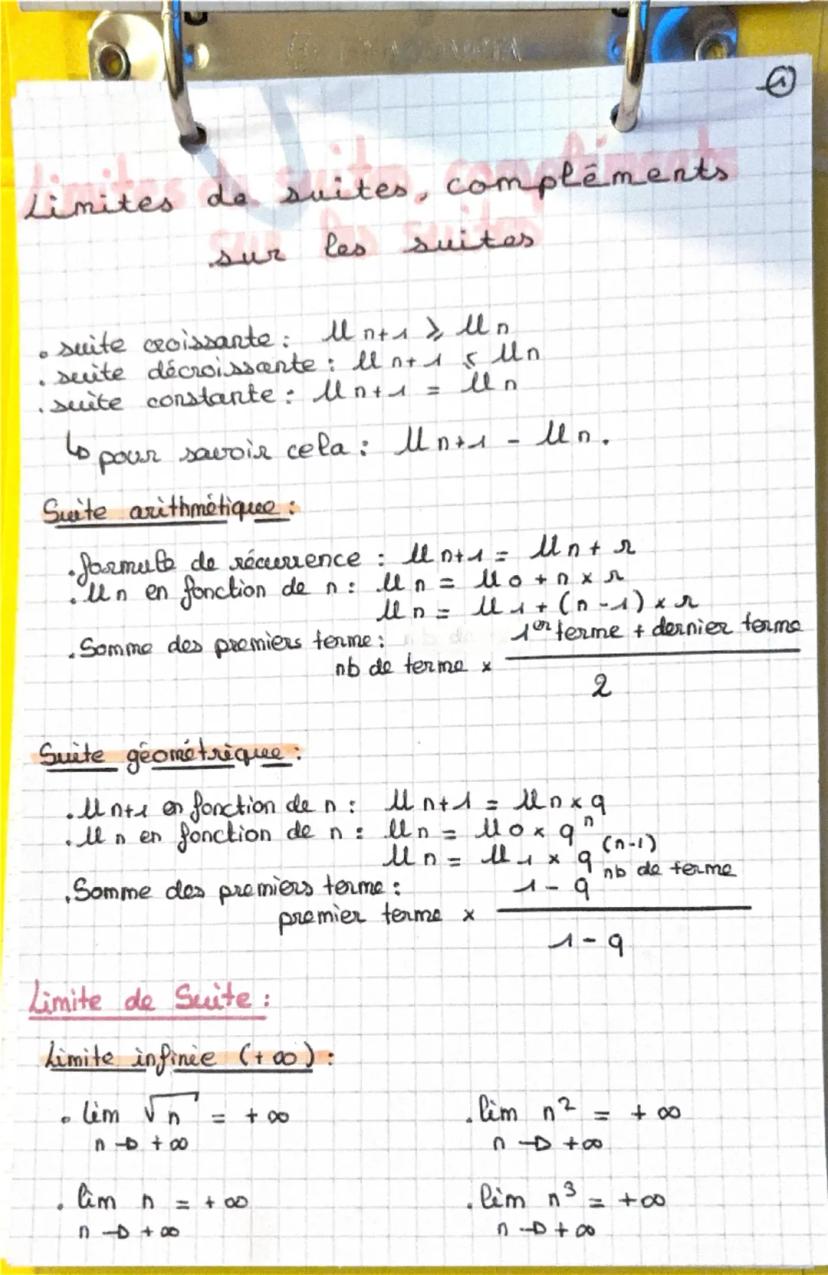 ①
Limites de suites, compléments
sur les suites
• suite croissante : Un+1 ≥ Un
• suite décroissante : Un+1 ≤ Un
• suite constante : Un+1 = Un
↳ pour savoir cela : Un+1 - Un.
Suite arithmétique :
• formule de récurrence : Un+1 = Un + r
• Un en fonction de n : Un = U0 + n × r
Un = U1 + (n-1) × r
• Somme des premiers terme :
nb de terme × (1er terme + dernier terme) / 2
Suite géométrique :
• Un+1 en fonction de n : Un+1 = Un × q
• Un en fonction de n : Un = U0 × q^n
Un = U1 × q^(n-1)
• Somme des premiers terme :
premier terme × (1 - q^nb de terme) / (1 - q)
Limite de Suite :
Limite infinie (+∞) :
• lim √n = +∞
n → +∞
• lim n² = +∞
n → +∞
• lim n = +∞
n → +∞
• lim n³ = +∞
n → +∞